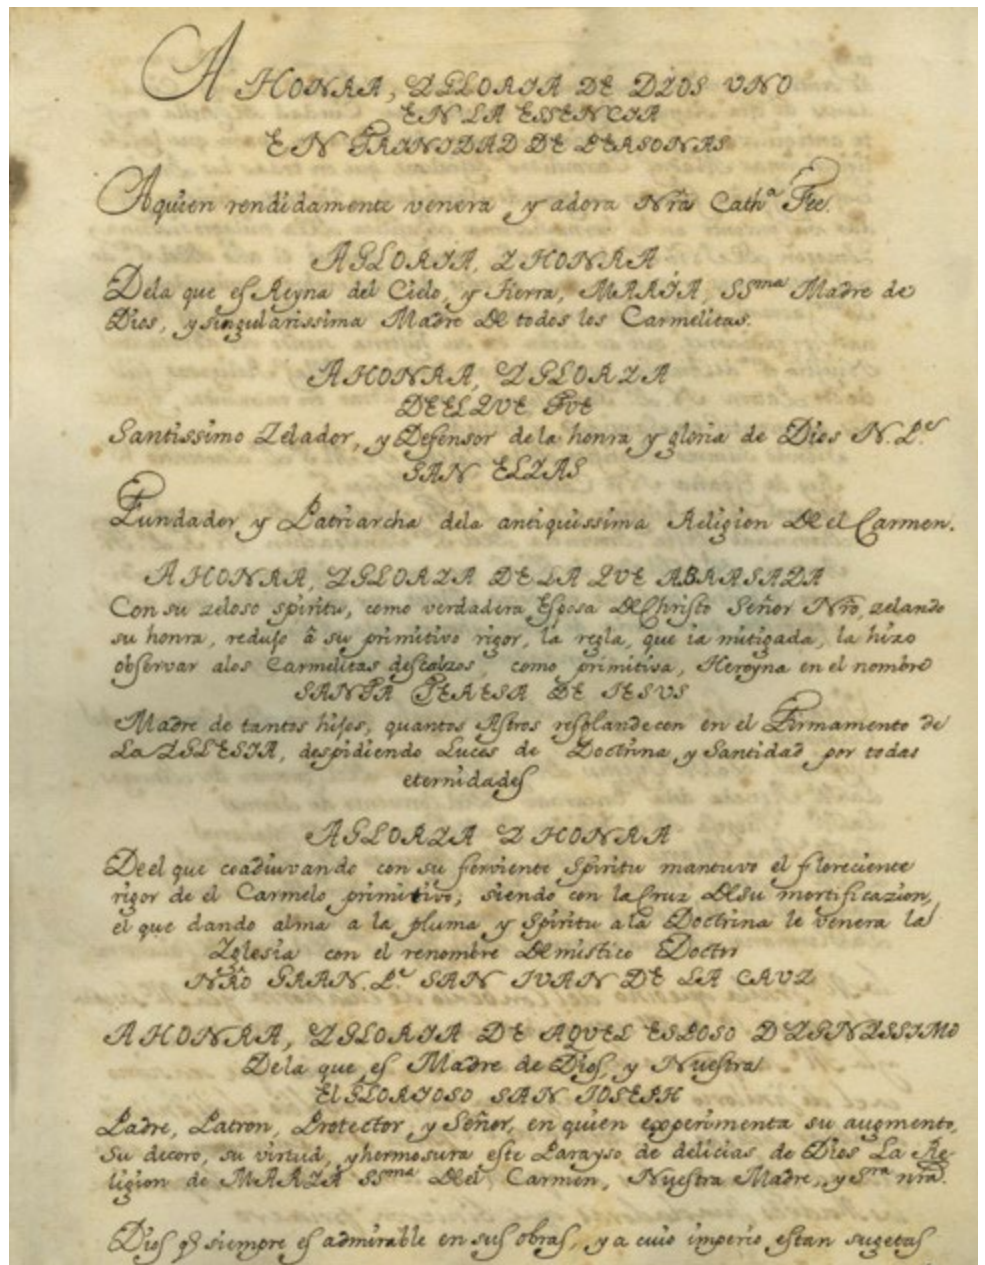 A HONRA, Y GLORIA DE DIOS UNO
EN LA ESSENCIA
EN TRINIDAD DE PERSONAS
Aquien rendidamente venera y adora Nrã Cathᵃ Fee.
A GLORIA, Y HONRA
Dela que es Reyna del Cielo, y tierra, MARIA, SSᵐᵃ Madre de
Dios, y singularissima Madre De todos los Carmelitas.
A HONRA, Y GLORIA
DEEL QUE FUE
Santissimo Zelador, y Defensor dela honra y gloria de Dios N. P.ᵉ
SAN ELIAS
Fundador y Patriarcha dela antiquissima Religion De el Carmen.
A HONRA, Y GLORIA DE LA QUE ABRASADA
Con su zeloso spiritu, como verdadera Esposa De Christo Señor Nrõ, zelando
su honra, redujo â su primitivo rigor, la regla, que ia mitigada, la hizo
observar alos Carmelitas descalzos, como primitiva, Heroyna en el nombre
SANTA TERESA DE IESUS
Madre de tantos hijos, quantos Astros resplandecen en el Firmamento de
LA IGLESIA, despidiendo Luces de Doctrina y Santidad por todas
eternidades
A GLORIA Y HONRA
Deel que coadiuvando con su ferviente Spiritu mantuvo el floreciente
rigor de el Carmelo primitivo; siendo con la Cruz De su mortificazion,
el que dando alma a la pluma y Spiritu ala Doctrina le venera la
Yglesia con el renombre De mistico Doctor
NRÕ GRAN. P.ᵉ SAN IUAN DE LA CRUZ
A HONRA, Y GLORIA DE AQUEL ESPOSO DIGNISSIMO
Dela que es Madre de Dios, y Nuestra
El GLORIOSO SAN IOSEPH
Padre, Patron, Protector, y Señor, en quien experimenta su augmento,
su decoro, su virtud, y hermosura este Parayso de delicias de Dios La Re-
ligion de MARIA SSᵐᵃ Del Carmen, Nuestra Madre, y Sʳᵃ nrã.
Dios q̃ siempre es admirable en sus obras, y a cuio imperio estan sugetas